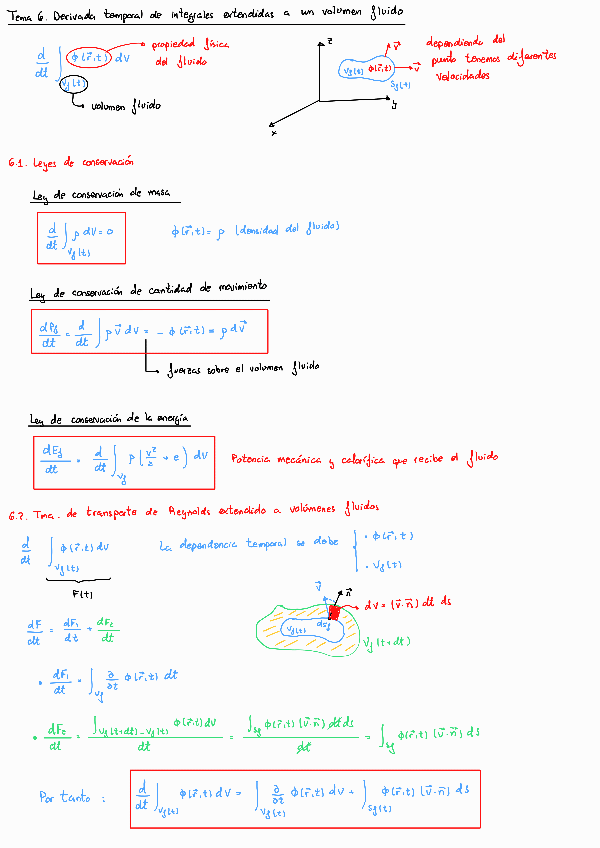 Tema 6. Derivada temporal de integrales extendidas a un volumen fluido
d/dt ∫_{V_f(t)} ϕ(r⃗,t) dV
propiedad física
del fluido
volumen fluido
z
y
x
V_f(t) ϕ(r⃗,t)
S_f(t)
v⃗
v⃗
dependiendo del
punto tenemos diferentes
velocidades
6.1. Leyes de conservación
Ley de conservación de masa
d/dt ∫_{V_f(t)} ρ dV = 0
ϕ(r⃗,t) = ρ (densidad del fluido)
Ley de conservación de cantidad de movimiento
dP_f/dt = d/dt ∫ ρ v⃗ dV = - ϕ(r⃗,t) = ρ dv⃗
fuerzas sobre el volumen fluido
Ley de conservación de la energía
dE_f/dt = d/dt ∫_{V_f} ρ (v²/2 + e) dV
Potencia mecánica y calorífica que recibe el fluido
6.2. Tma. de transporte de Reynolds extendido a volúmenes fluidos
d/dt ∫_{V_f(t)} ϕ(r⃗,t) dV
F(t)
La dependencia temporal se debe
· ϕ(r⃗,t)
· V_f(t)
v⃗
n⃗
dV = (v⃗·n⃗) dt ds
V_f(t)
dS_f
V_f(t+dt)
dF/dt = dF₁/dt + dF₂/dt
• dF₁/dt = ∫_{V_f} ∂/∂t ϕ(r⃗,t) dt
• dF₂/dt = ∫_{V_f(t+dt)-V_f(t)} ϕ(r⃗,t) dV / dt = ∫_{S_f} ϕ(r⃗,t) (v⃗·n⃗) dt ds / dt = ∫_{S_f} ϕ(r⃗,t) (v⃗·n⃗) ds
Por tanto :
d/dt ∫_{V_f(t)} ϕ(r⃗,t) dV = ∫_{V_f(t)} ∂/∂t ϕ(r⃗,t) dV + ∫_{S_f(t)} ϕ(r⃗,t) (v⃗·n⃗) ds